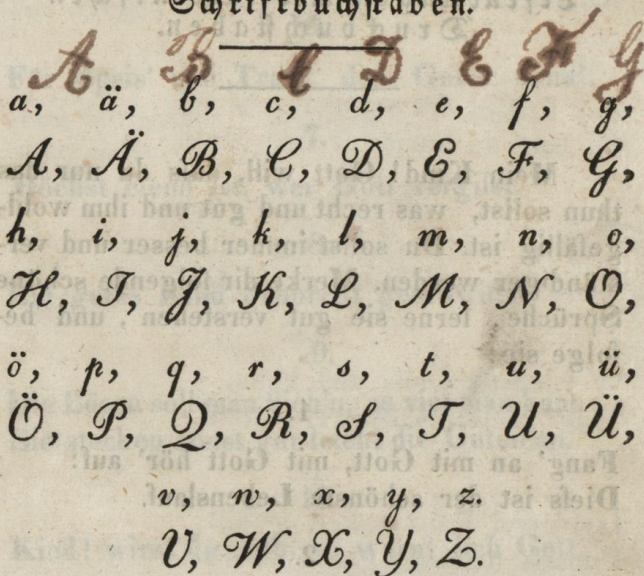 Schriftbuchstaben.
A B C D E F G
a, ä, b, c, d, e, f, g,
A, Ä, B, C, D, E, F, G,
h, i, j, k, l, m, n, o,
H, I, J, K, L, M, N, O,
ö, p, q, r, s, t, u, ü,
Ö, P, Q, R, S, T, U, Ü,
v, w, x, y, z.
V, W, X, Y, Z.